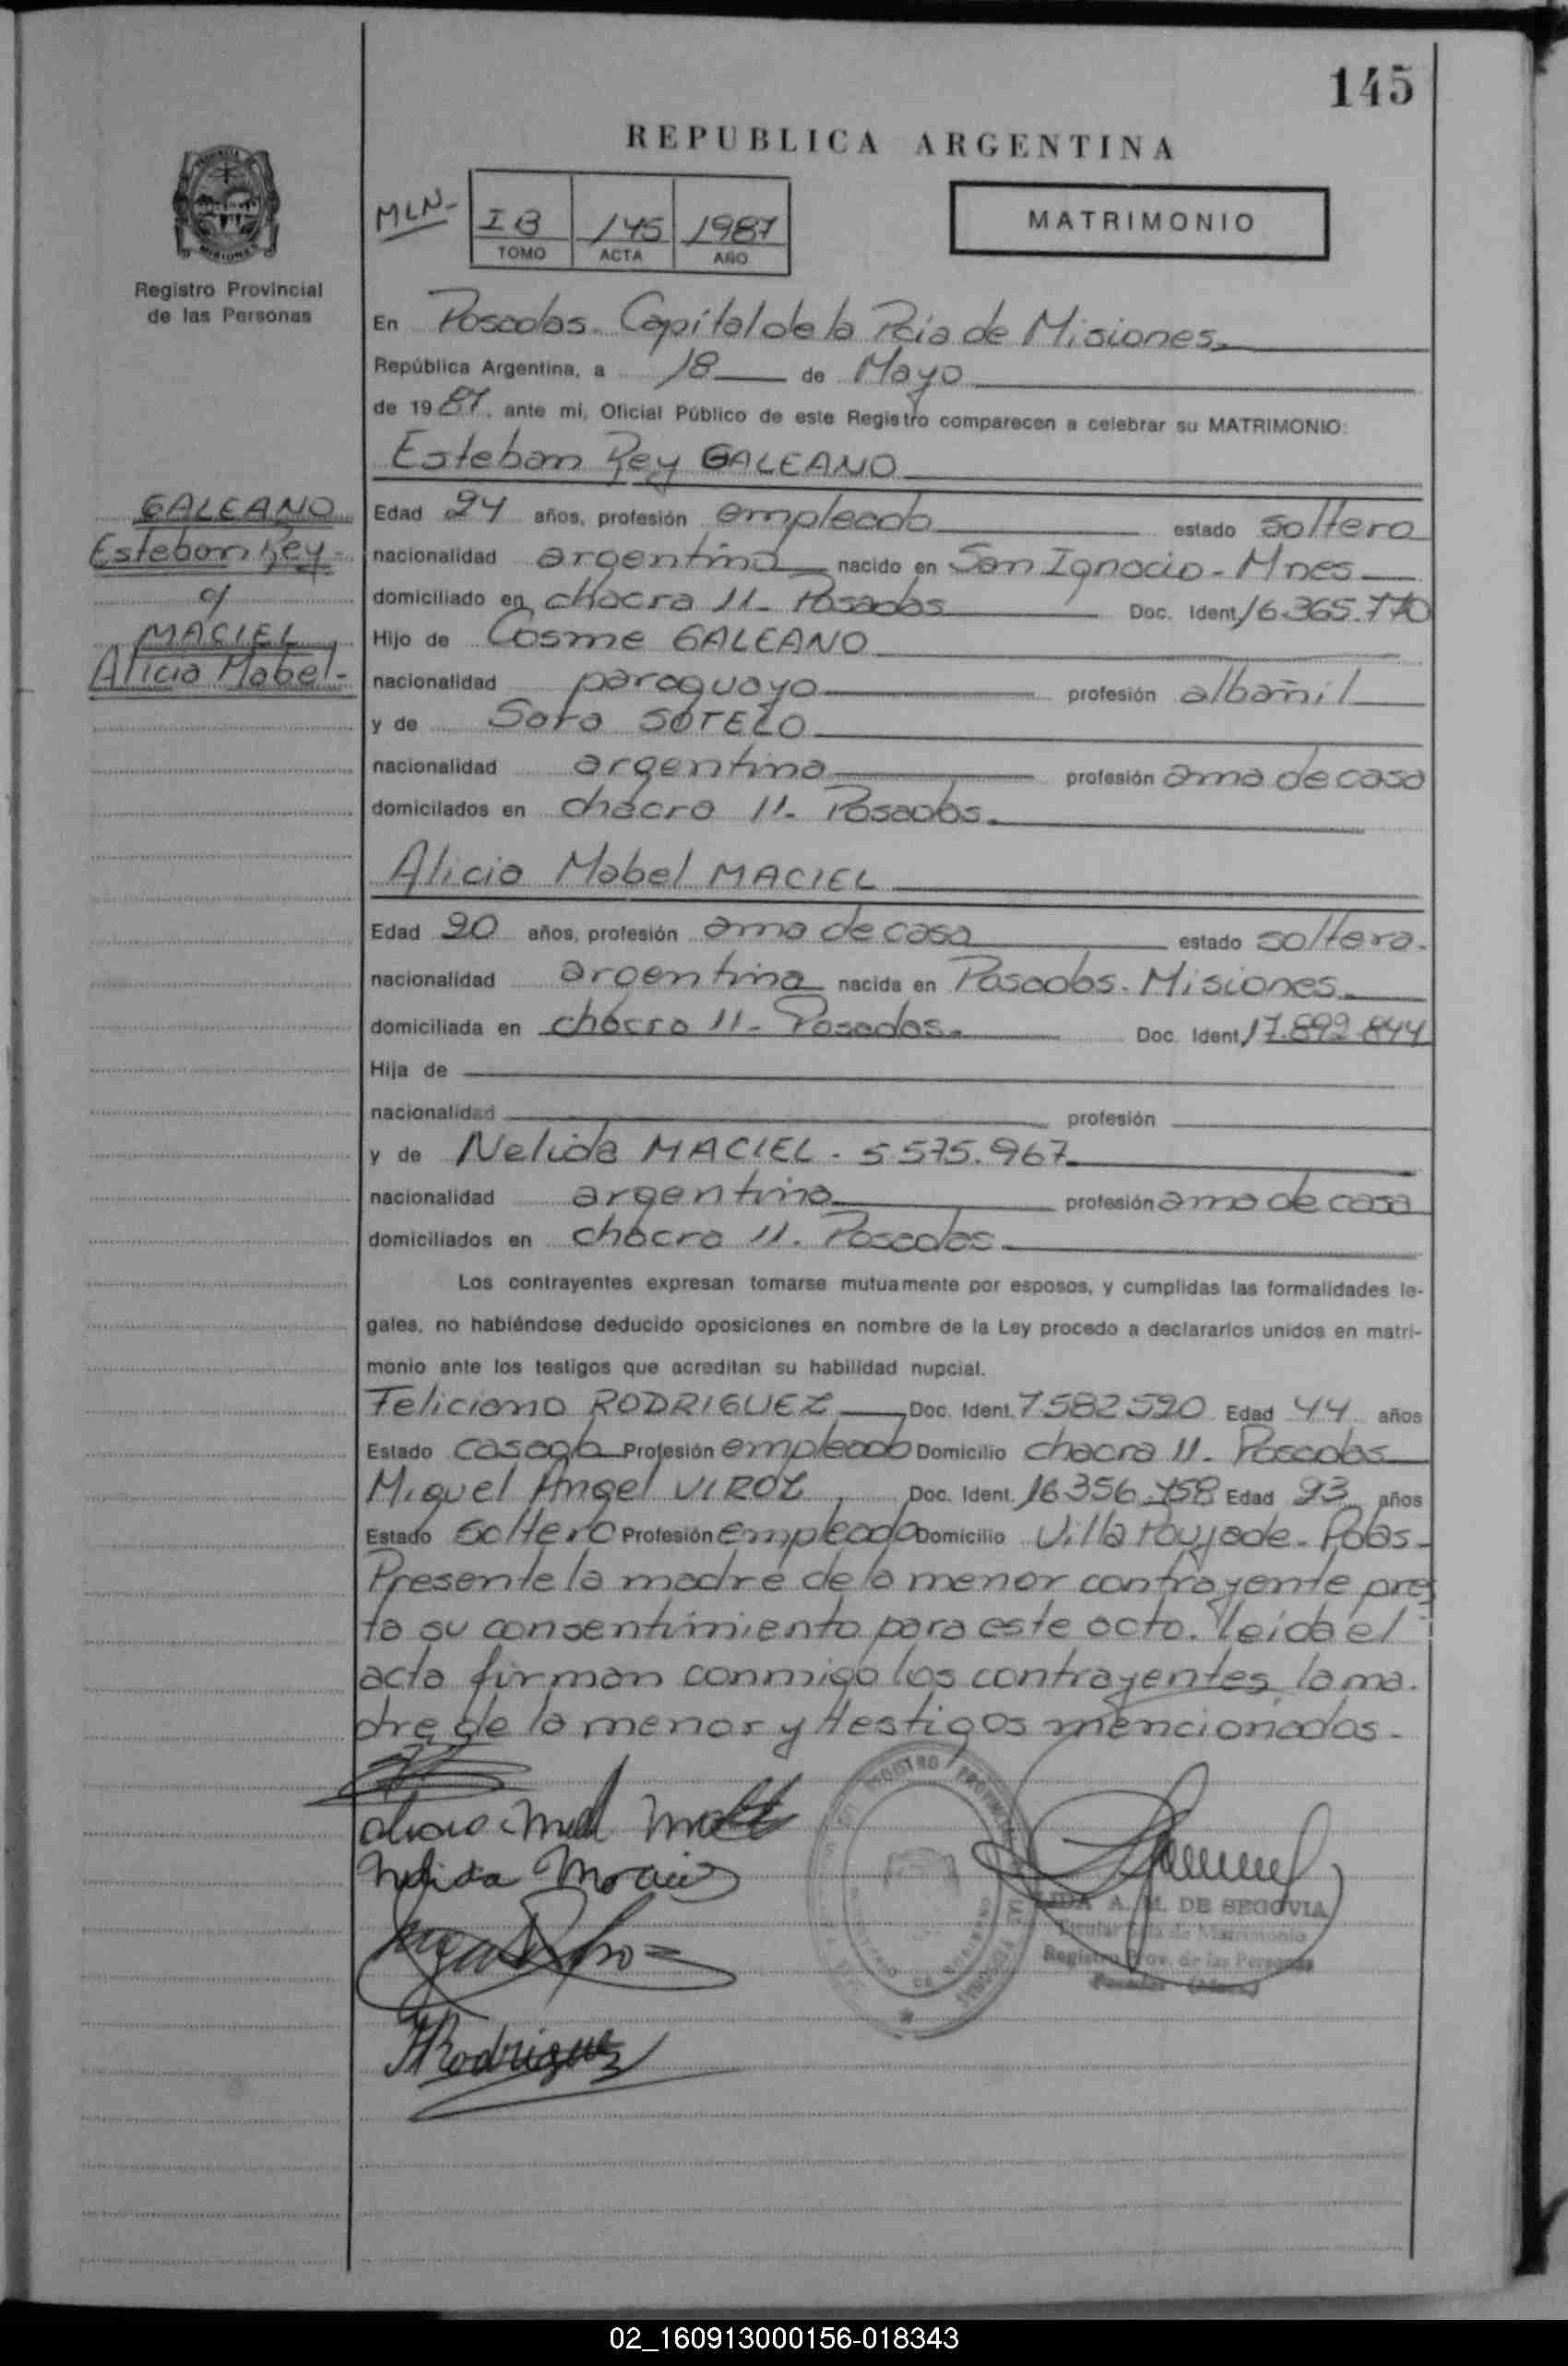 145
REPUBLICA ARGENTINA
MLN-
I B 145 1987
TOMO ACTA AÑO
MATRIMONIO
Registro Provincial
de las Personas
En Posadas. Capital de la Pcia de Misiones.
República Argentina, a 18 de Mayo
de 1987, ante mi, Oficial Público de este Registro comparecen a celebrar su MATRIMONIO:
Esteban Rey GALEANO
GALEANO
Esteban Rey-
c/
MACIEL
Alicia Mabel-
Edad 24 años, profesión empleado estado soltero
nacionalidad argentina nacido en San Ignacio - Mnes
domiciliado en chacra 11- Posadas Doc. Ident. 16.365.770
Hijo de Cosme GALEANO
nacionalidad paraguaya profesión albañil
y de Sara SOTELO
nacionalidad argentina profesión ama de casa
domicilados en chacra 11- Posadas.
Alicia Mabel MACIEL
Edad 20 años, profesión ama de casa estado soltera.
nacionalidad argentina nacida en Posadas - Misiones.
domiciliada en chacra 11- Posadas. Doc. Ident. 17.892.844
Hija de
nacionalidad profesión
y de Nelida MACIEL - 5.575.967
nacionalidad argentina profesión ama de casa
domiciliados en chacra 11. Posadas
Los contrayentes expresan tomarse mutuamente por esposos, y cumplidas las formalidades le-
gales, no habiéndose deducido oposiciones en nombre de la Ley procedo a declararlos unidos en matri-
monio ante los testigos que acreditan su habilidad nupcial.
Feliciano RODRIGUEZ Doc. Ident. 7.582.520 Edad 44 años
Estado casado Profesión empleado Domicilio chacra 11- Posadas
Miguel Angel VIROZ Doc. Ident. 16.356.758 Edad 23 años
Estado Soltero Profesión empleado Domicilio Villa Poujade - Pdas-
Presente la madre de la menor contrayente pres
ta su consentimiento para este acto. Leida el
acta firman conmigo los contrayentes, la ma-
dre de la menor y testigos mencionados-
Nelida
Rodriguez
REGISTRO
A. M. DE SEGOVIA
Titular de Matrimonio
Registro Prov. de las Personas
Posadas (Mnes.)
02_160913000156-018343